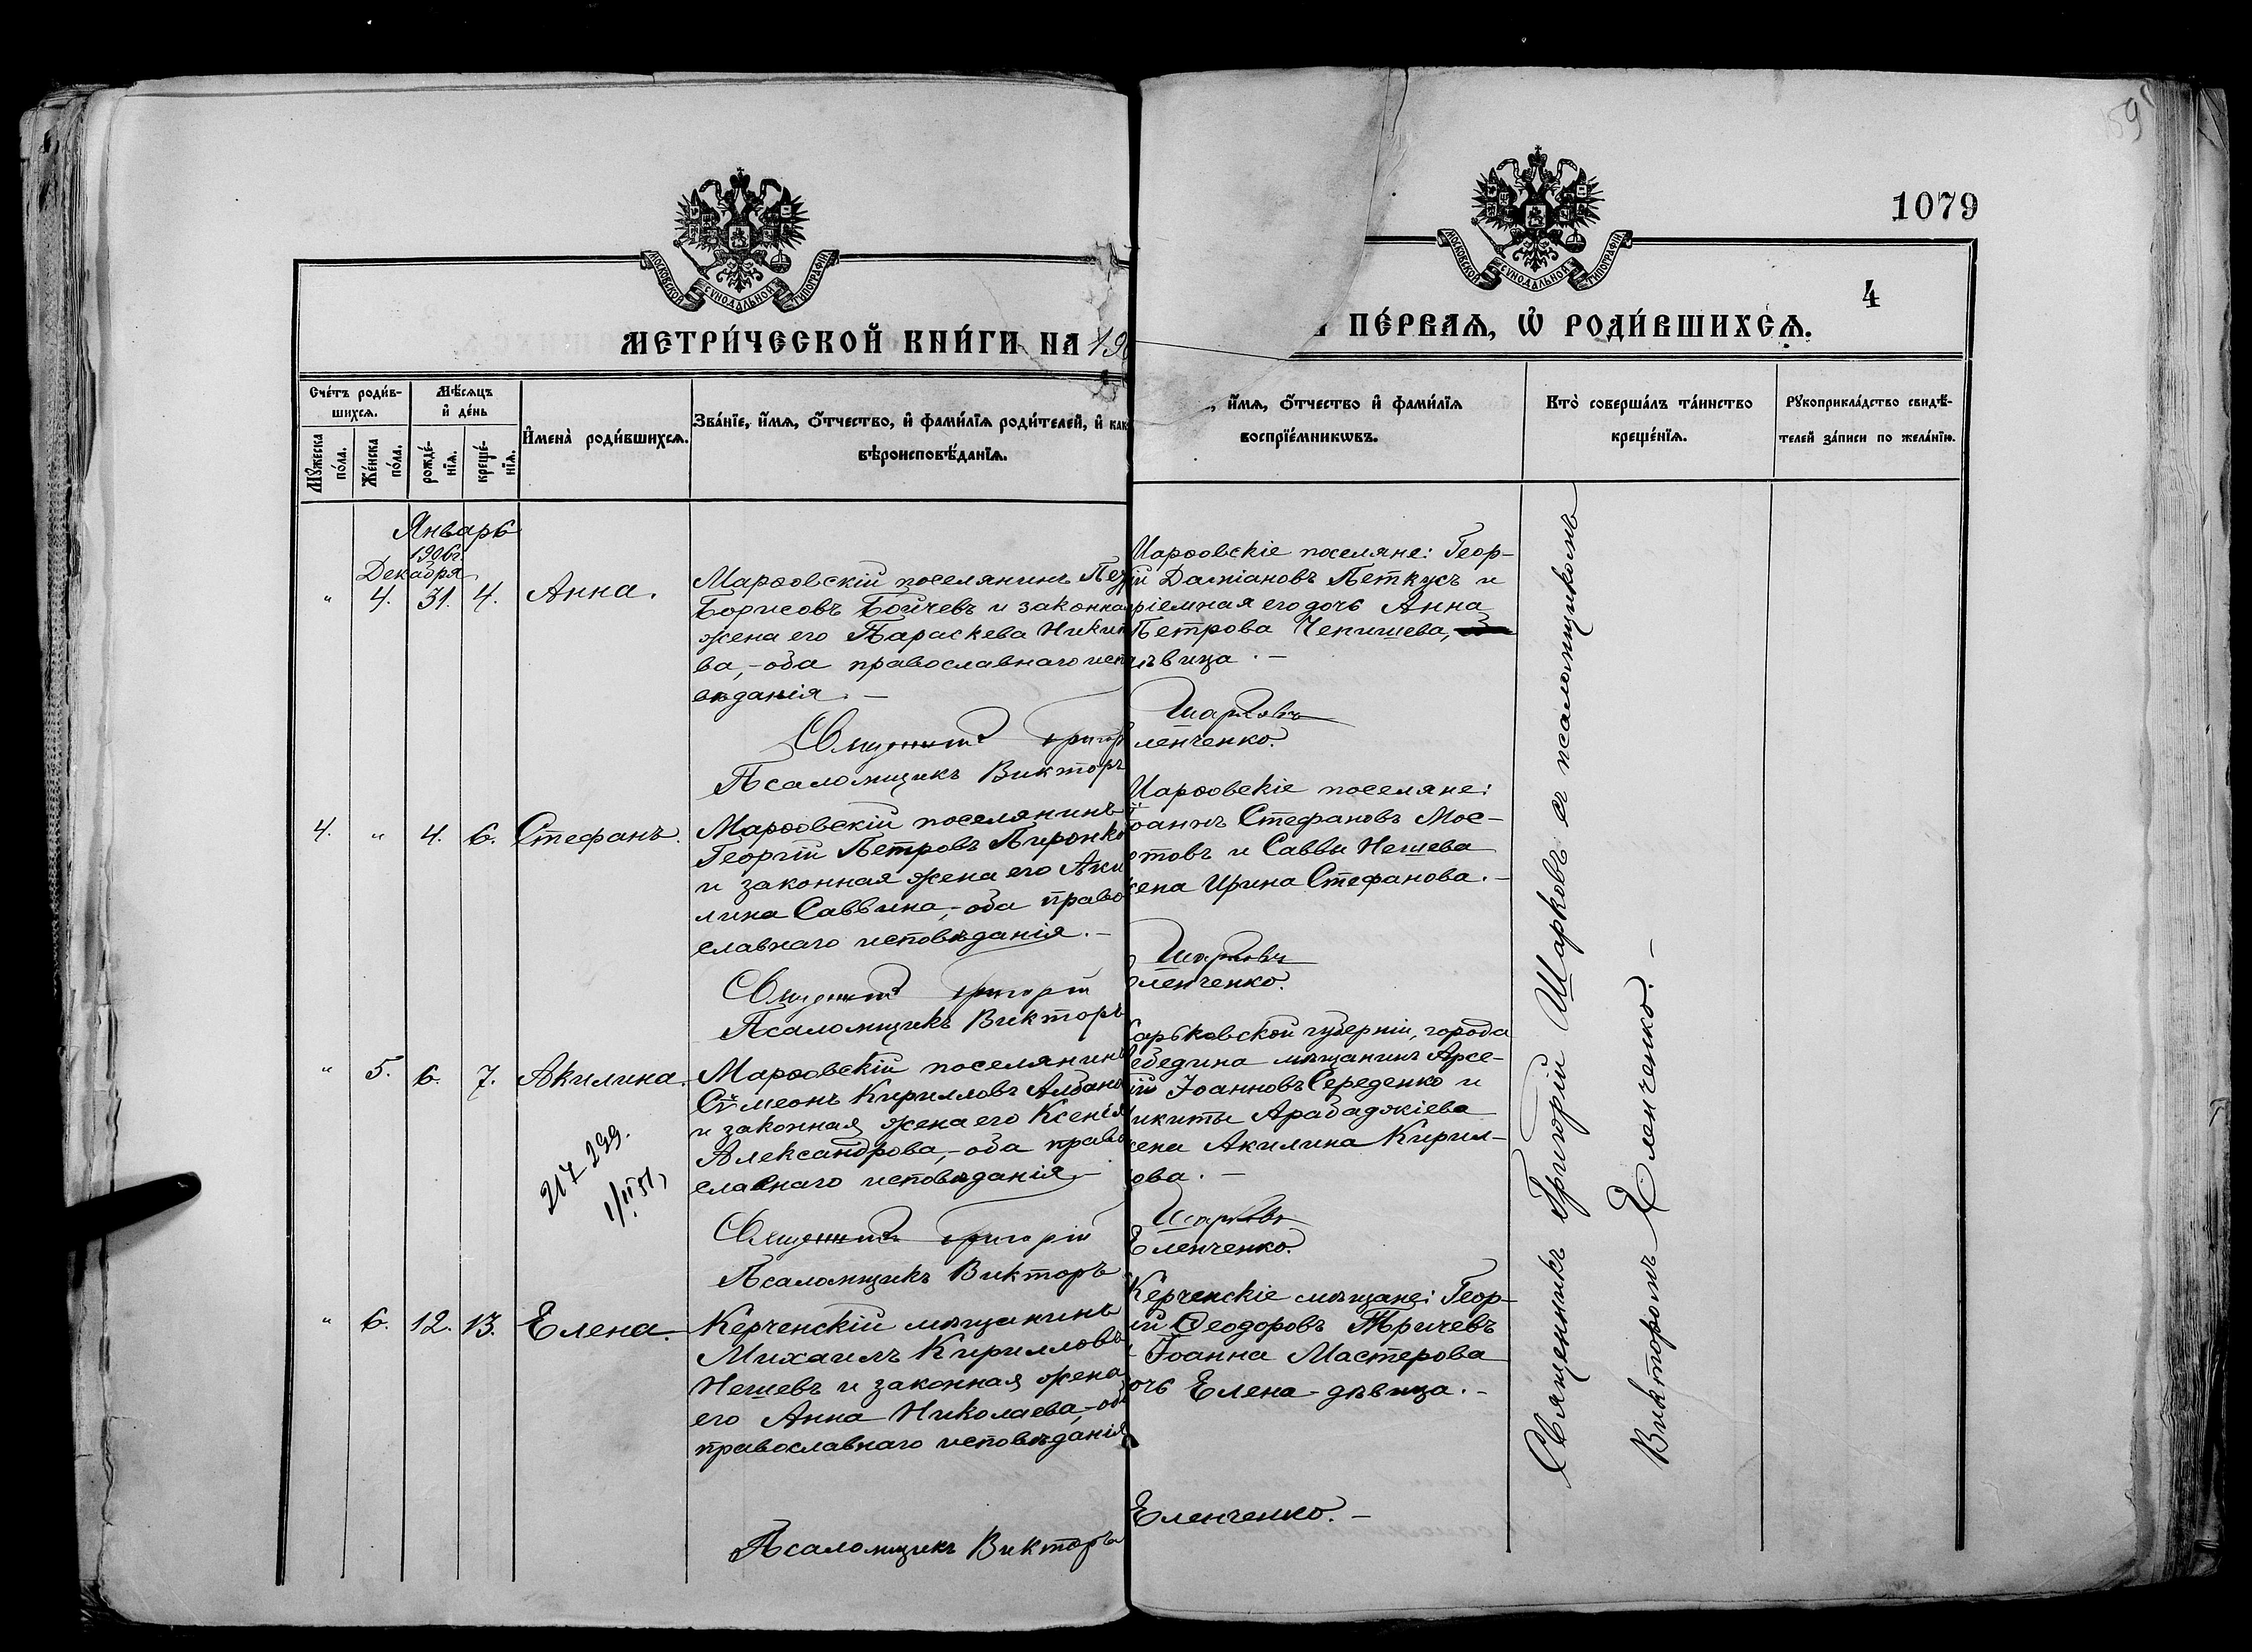 159
1079
4
МОСКОВСКОЙ СѴНОДАЛЬНОЙ ТИПОГРАФІИ
МОСКОВСКОЙ СѴНОДАЛЬНОЙ ТИПОГРАФІИ
МЕТРИ́ЧЕСКОЙ КНИ́ГИ НА 190
ПЕ́РВАѦ, Ѡ҆ РОДИ́ВШИХСѦ.
Сче́тъ роди́в-
шихсѧ.
Мѣ́сѧцъ
и҆ де́нь
Мꙋ́жеска
по́ла.
Же́нска
по́ла.
рожде́-
нїѧ.
креще́-
нїѧ.
И҆мена̀ роди́вшихсѧ.
Зва́нїе, и҆́мѧ, ѻ҆́тчество, и҆ фами́лїѧ роди́телей, и҆ как
вѣроисповѣ́данїѧ.
, и҆́мѧ, ѻ҆́тчество и҆ фами́лїѧ
воспрїе́мникѡвъ.
Кто̀ соверша́лъ та́инство
креще́нїѧ.
Рꙋкоприкла́дство свидѣ́-
телей за́писи по жела́нїю.
Январь
1906г.
Декабря
" 4. 31. 4. Анна.
Марѳовскій поселянинъ Пет
Борисовъ Бойчевъ и законна
жена его Параскева Ники
ва,-оба православнаго испо
вѣданія.-
Священникъ Григор
Псаломщикъ Викторъ
Марѳовскіе поселяне: Геор-
ій Даміановъ Петкусъ и
ріемная его дочь Анна
Петрова Чепишева,
ѣвица.-
Шарковъ
ленченко.
4. " 4. 6. Стефанъ.
Марѳовскій поселянинъ
Георгій Петровъ Пиронко
и законная жена его Аки
лина Саввина,-оба право
славнаго исповѣданія.-
Священникъ Григорій
Псаломщикъ Викторъ
Марѳовскіе поселяне:
оаннъ Стефановъ Мос-
товъ и Саввы Нешева
ена Ирина Стефанова.-
Шарковъ
ленченко.
" 5. 6. 7. Акилина.
217 299.
1/II 51,
Марѳовскій поселянинъ
Сѵмеонъ Кирилловъ Албано
и законная жена его Ксенія
Александрова,-оба право
славнаго исповѣданія.-
Священникъ Григорій
Псаломщикъ Викторъ
арьковской губерніи, города
ебедина мѣщанинъ Арсе-
ій Іоанновъ Середенко и
икиты Арабаджіева
ена Акилина Кирил-
ова.-
Шарковъ
Еленченко.
" 6. 12. 13. Елена.
Керченскій мѣщанинъ
Михаилъ Кирилловъ
Нешевъ и законная жена
его Анна Николаева,-об
православнаго исповѣданія
Псаломщикъ Викторъ
Керченскіе мѣщане: Геор-
ій Ѳеодоровъ Тричевъ
Іоанна Мастерова
очь Елена-дѣвица.-
Еленченко.-
Священникъ Григорій Шарковъ съ псаломщикомъ
Викторомъ Еленченко.-